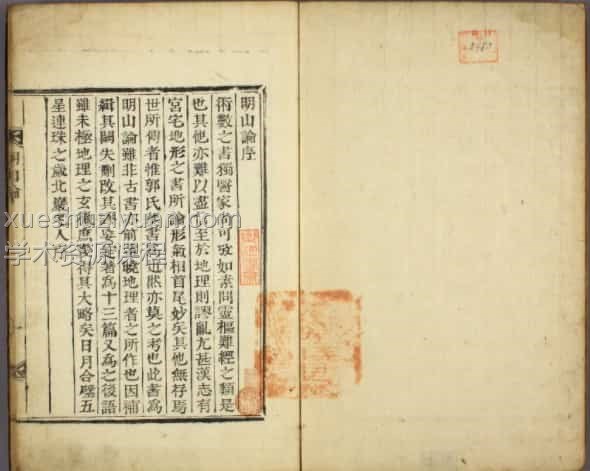 明山論序
術數之書獨醫家尚可攷如素問靈樞難經之類是
也其他亦難以盡信至於地理則謬亂尤甚漢志有
宮宅地形之書所論形氣相首尾妙矣其他無存焉
世所傳者惟郭氏葬書近然亦莫之考也此書爲
明山論雖非古書前曉地理者之所作也因補
緝其闕失刪改其定著爲十三篇又爲之後語
雖未極地理之玄微庶得其大略矣日月合璧五
星連珠之歲北巖老人序
xuesheliyuan.com